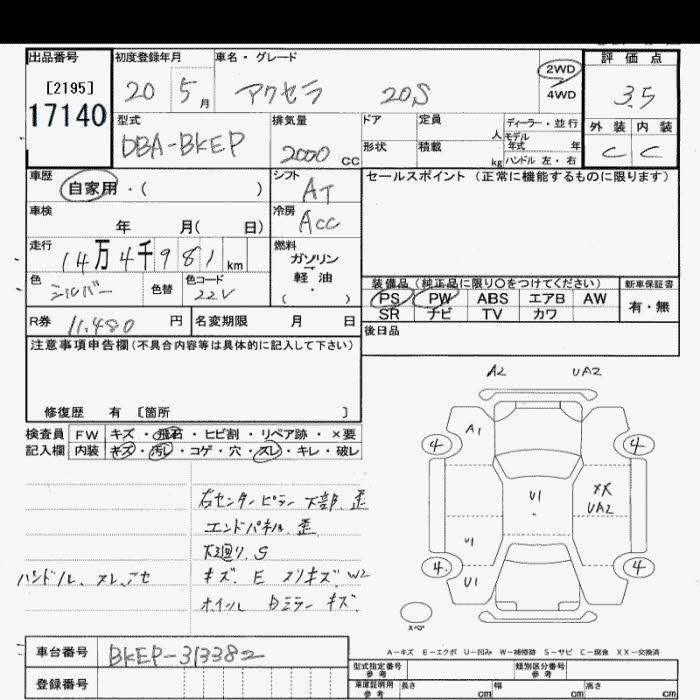 出品番号 初度登録年月 車名・グレード 評価点
[2195] 20 5月 アクセラ 20S 2WD 3.5
17140 4WD
型式 排気量 ドア 定員 人 ディーラー・並行 外装 内装
モデル
DBA-BKEP 2000 cc 形状 積載 kg 年式 年 C C
ハンドル 左・右
車歴 シフト セールスポイント (正常に機能するものに限ります)
自家用・( ) AT
車検 冷房
年 月( 日) Acc
走行 燃料
14万4千981km ガソリン
軽油
色 色替 色コード ( )
シルバー 22V
装備品 (純正品に限り〇をつけてください) 新車保証書
PS PW ABS エアB AW 有・無
SR ナビ TV カワ
R券 11,480円 名変期限 月 日 後日品
注意事項申告欄(不具合内容等は具体的に記入して下さい)
修復歴 有 [箇所 ]
検査員 FW キズ・飛石・ヒビ割・リペア跡・×要
記入欄 内装 キズ・汚レ・コゲ・穴・スレ・キレ・破レ
A2 UA2
A1
4 4
U1 XX
UA2
U1
4 4
U1
スペア
右センターピラー下部、歪
エンドパネル、歪
下廻り、S
ハンドル、スレ、アセ キズ、E スリキズ、W2
ホイル キズ
A-キズ E-エクボ U-凹み W-補修跡 S-サビ C-腐食 XX-交換済
車台番号 BKEP-313382
登録番号
型式指定番号 類別区分番号
参考 参考
車庫証明用 長さ cm 幅 cm 高さ cm
参考